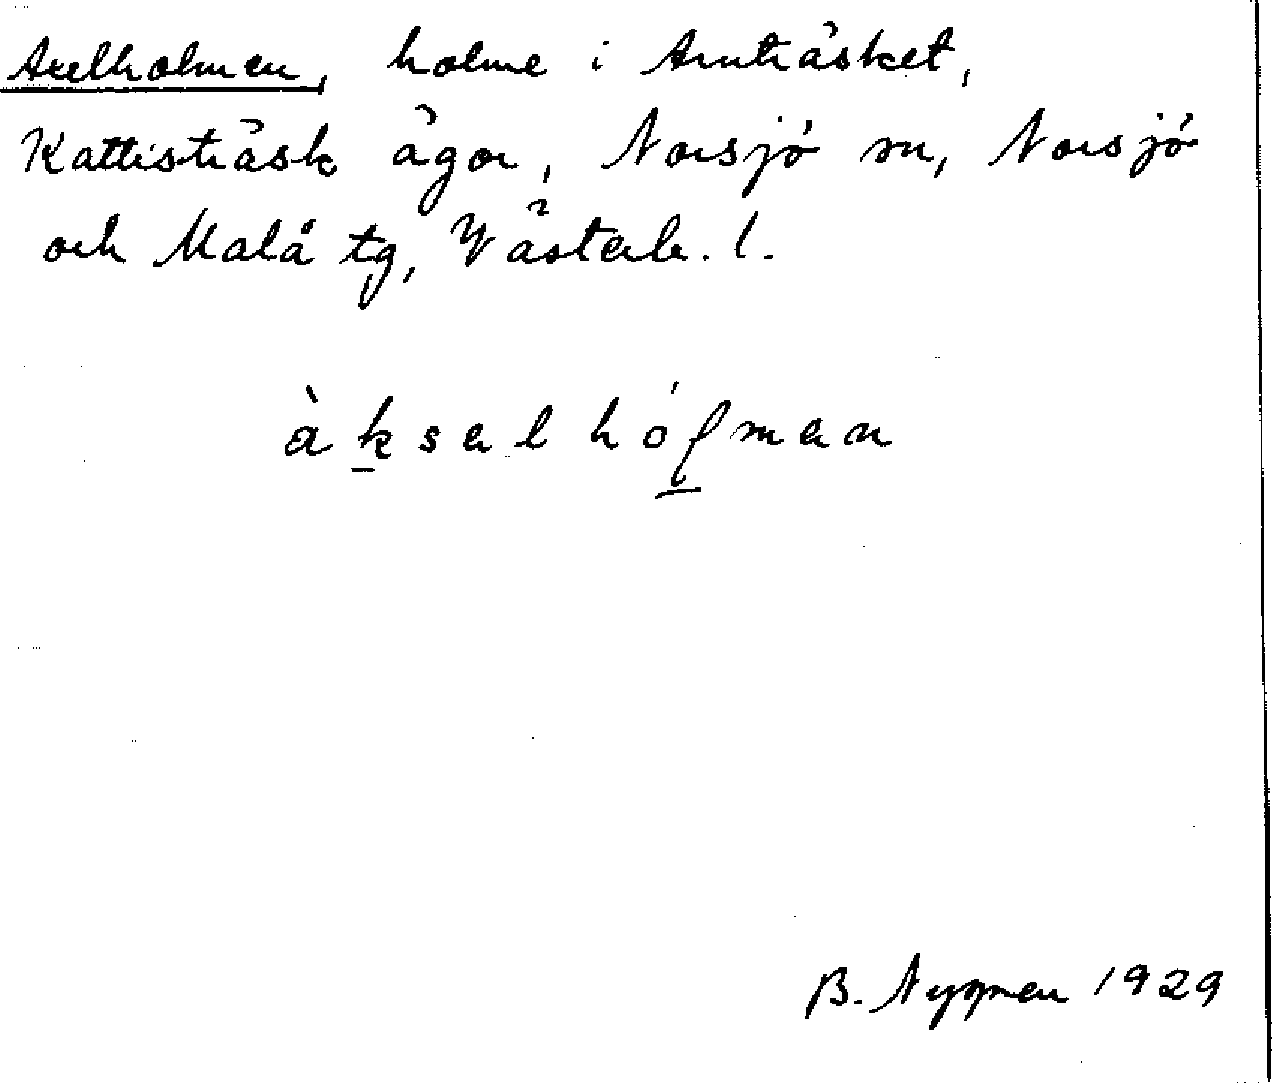 Axelholmen, holme i Arnträsket,
Kattisträsk ägor, Norsjö sn, Norsjö
och Malå tg, Västerb. l.
àksəlhólmən
B. Nygren 1929